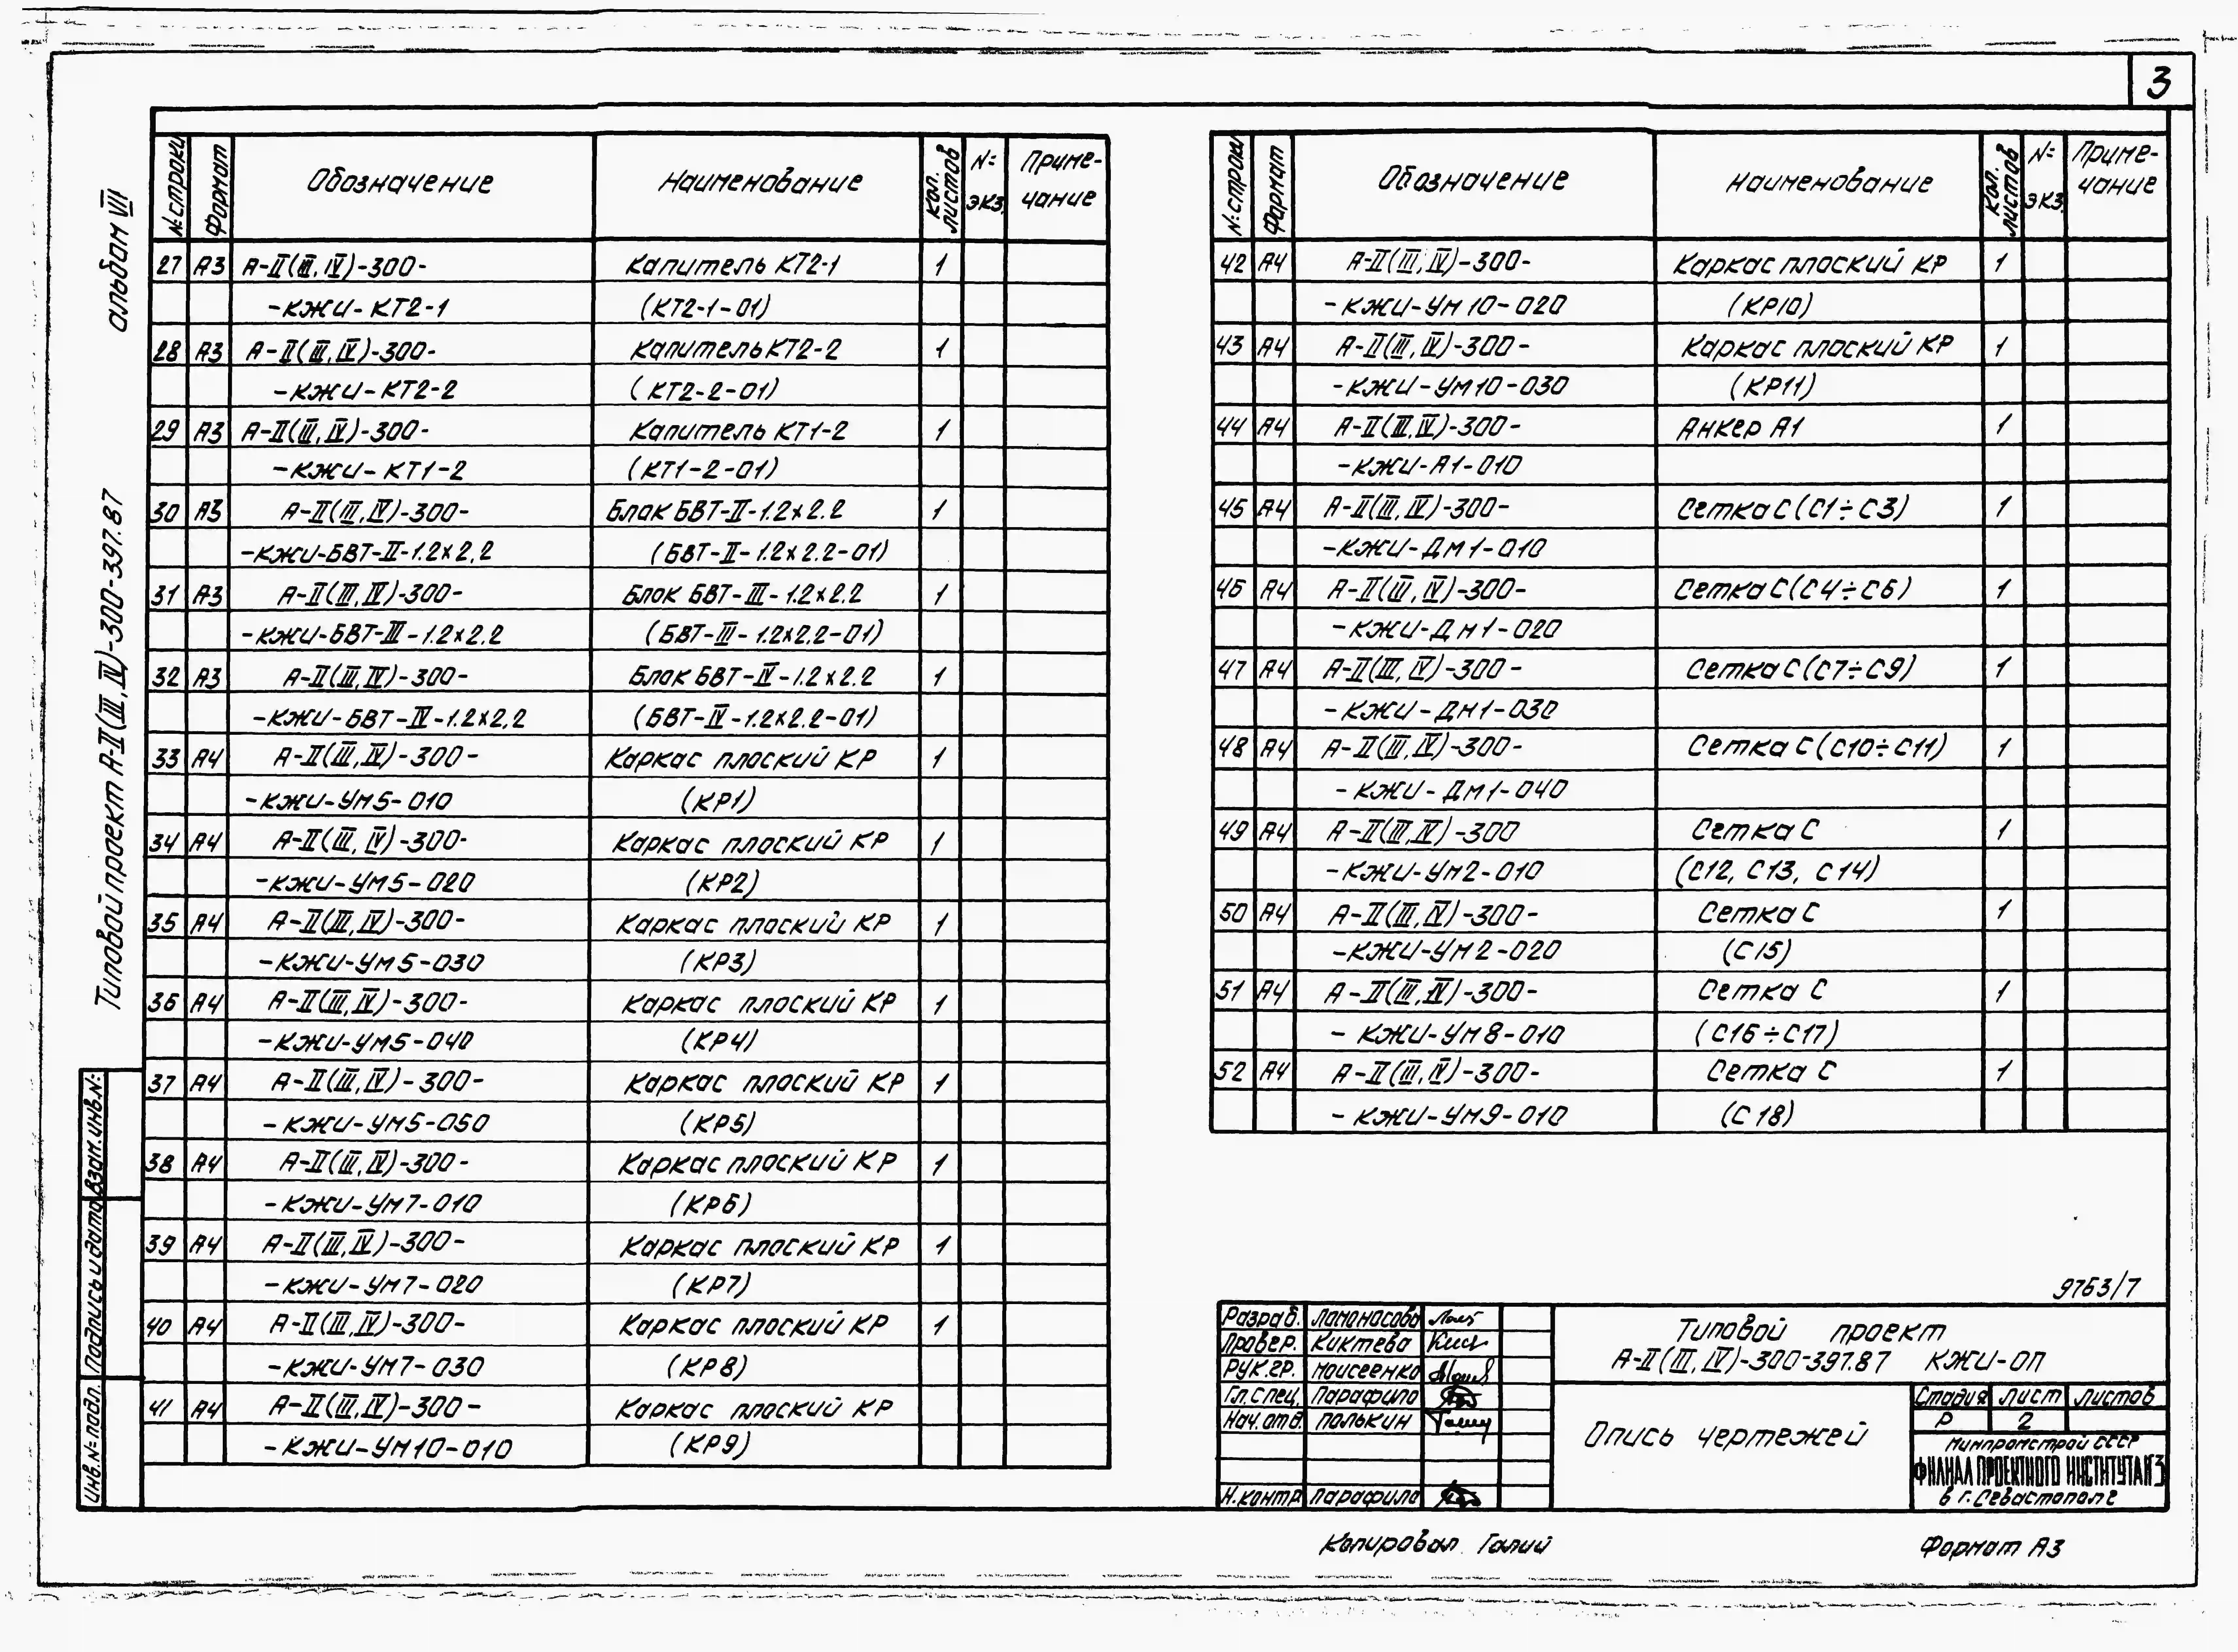 3
альбом VII
Типовой проект А-II(III, IV)-300-397.87
Взам. инв. №:
Подпись и дата
Инв. №: подл.
№: строки Формат Обозначение Наименование Кол. листов №: экз. Приме-чание
27 А3 А-II(III, IV)-300- Капитель КТ2-1 1
-КЖИ-КТ2-1 (КТ2-1-01)
28 А3 А-II(III, IV)-300- Капитель КТ2-2 1
-КЖИ-КТ2-2 (КТ2-2-01)
29 А3 А-II(III, IV)-300- Капитель КТ1-2 1
-КЖИ-КТ1-2 (КТ1-2-01)
30 А3 А-II(III, IV)-300- Блок БВТ-II-1.2х2.2 1
-КЖИ-БВТ-II-1.2х2.2 (БВТ-II-1.2х2.2-01)
31 А3 А-II(III, IV)-300- Блок БВТ-III-1.2х2.2 1
-КЖИ-БВТ-III-1.2х2.2 (БВТ-III-1.2х2.2-01)
32 А3 А-II(III, IV)-300- Блок БВТ-IV-1.2х2.2 1
-КЖИ-БВТ-IV-1.2х2.2 (БВТ-IV-1.2х2.2-01)
33 А4 А-II(III, IV)-300- Каркас плоский КР 1
-КЖИ-УМ5-010 (КР1)
34 А4 А-II(III, IV)-300- Каркас плоский КР 1
-КЖИ-УМ5-020 (КР2)
35 А4 А-II(III, IV)-300- Каркас плоский КР 1
-КЖИ-УМ5-030 (КР3)
36 А4 А-II(III, IV)-300- Каркас плоский КР 1
-КЖИ-УМ5-040 (КР4)
37 А4 А-II(III, IV)-300- Каркас плоский КР 1
-КЖИ-УМ5-050 (КР5)
38 А4 А-II(III, IV)-300- Каркас плоский КР 1
-КЖИ-УМ7-010 (КР6)
39 А4 А-II(III, IV)-300- Каркас плоский КР 1
-КЖИ-УМ7-020 (КР7)
40 А4 А-II(III, IV)-300- Каркас плоский КР 1
-КЖИ-УМ7-030 (КР8)
41 А4 А-II(III, IV)-300- Каркас плоский КР
-КЖИ-УМ10-010 (КР9)
№: строки Формат Обозначение Наименование Кол. листов №: экз. Приме-чание
42 А4 А-II(III, IV)-300- Каркас плоский КР 1
-КЖИ-УМ10-020 (КР10)
43 А4 А-II(III, IV)-300- Каркас плоский КР 1
-КЖИ-УМ10-030 (КР11)
44 А4 А-II(III, IV)-300- Анкер А1 1
-КЖИ-А1-010
45 А4 А-II(III, IV)-300- Сетка С (С1÷С3) 1
-КЖИ-ДМ1-010
46 А4 А-II(III, IV)-300- Сетка С (С4÷С6) 1
-КЖИ-ДМ1-020
47 А4 А-II(III, IV)-300- Сетка С (С7÷С9) 1
-КЖИ-ДМ1-030
48 А4 А-II(III, IV)-300- Сетка С (С10÷С11) 1
-КЖИ-ДМ1-040
49 А4 А-II(III, IV)-300 Сетка С 1
-КЖИ-УМ2-010 (С12, С13, С14)
50 А4 А-II(III, IV)-300- Сетка С 1
-КЖИ-УМ2-020 (С15)
51 А4 А-II(III, IV)-300- Сетка С 1
-КЖИ-УМ8-010 (С16÷С17)
52 А4 А-II(III, IV)-300- Сетка С 1
-КЖИ-УМ9-010 (С18)
9763/7
Разраб. Ломоносова
Провер. Киктева
Рук.гр. Моисеенко
Гл.спец. Парафило
Нач.отд. Полькин
Н.контр. Парафило
Типовой проект
А-II(III, IV)-300-397.87 КЖИ-ОП
Опись чертежей
Стадия Лист Листов
Р 2
Минпромстрой СССР
ФИЛИАЛ ПРОЕКТНОГО ИНСТИТУТА №3
в г. Севастополе
Копировал Галий
Формат А3